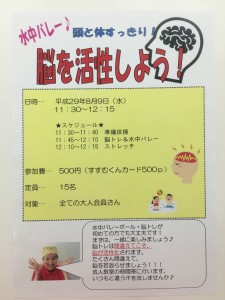 水中バレー♪
頭と体すっきり!
脳を活性しよう!
日時… 平成29年8月9日(水)
11:30~12:15
★スケジュール★
11:30~11:40 準備体操
11:45~12:10 脳トレ&水中バレー
12:10~12:15 ストレッチ
参加費… 500円(すすむくんカード500p)
定員… 15名
対象… 全ての大人会員さん
水中バレーボール・脳トレが
初めての方でも大丈夫です!
まずは、一緒に楽しみましょう♪
脳トレは間違えてこそ、
脳が活性とされます。
たくさん間違えて、
脳を若返らせましょう!!!
成人教室の時間帯に行います。
いつもと違う汗を流しませんか♪